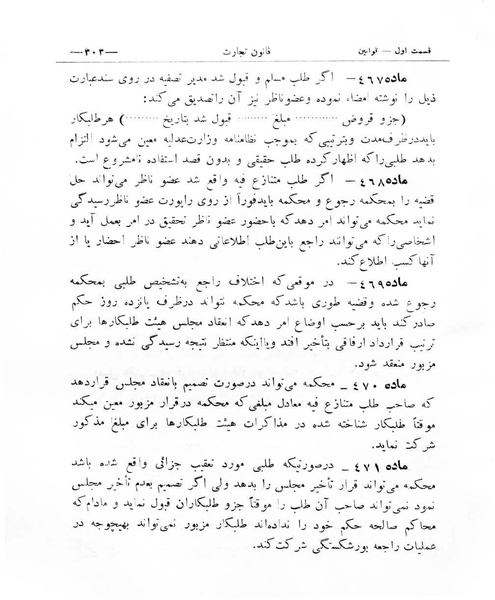 قسمت اول — قوانین قانون تجارت —۳۰۳—
ماده۴۶۷— اگر طلب مسلم و قبول شد مدیر تصفیه در روی سندعبارت
ذیل را نوشته امضاء نموده وعضوناظر نیز آن راتصدیق می‌کند:
(جزو قروض ........ مبلغ ........ قبول شد بتاریخ ........) هرطلبکار
بایددرظرف‌مدت وبترتیبی‌که بموجب نظامنامه وزارت‌عدلیه معین می‌شود التزام
بدهد طلبی‌راکه اظهارکرده طلب حقیقی و بدون قصد استفاده نامشروع است.
ماده۴۶۸— اگر طلب متنازع فیه واقع شد عضو ناظر می‌تواند حل
قضیه را بمحکمه رجوع و محکمه بایدفوراً از روی راپورت عضو ناظررسیدگی
نماید محکمه می‌تواند امر دهدکه باحضور عضو ناظر تحقیق در امر بعمل آید و
اشخاصی‌راکه می‌توانند راجع باین‌طلب اطلاعاتی دهند عضو ناظر احضار یا از
آنهاکسب اطلاع‌کند.
ماده۴۶۹— در موقعی‌که اختلاف راجع به‌تشخیص طلبی بمحکمه
رجوع شده وقضیه طوری باشدکه محکمه نتواند درظرف پانزده روز حکم
صادرکند باید برحسب اوضاع امر دهدکه انعقاد مجلس هیئت طلبکارها برای
ترتیب قرارداد ارفاقی بتأخیر افتد ویااینکه منتظر نتیجه رسیدگی نشده و مجلس
مزبور منعقد شود.
ماده ۴۷۰ — محکمه می‌تواند درصورت تصمیم بانعقاد مجلس قراردهد
که صاحب طلب متنازع فیه معادل مبلغی‌که محکمه درقرار مزبور معین میکند
موقتاً طلبکار شناخته شده در مذاکرات هیئت طلبکارها برای مبلغ مذکور
شرکت نماید.
ماده ۴۷۱ — درصورتیکه طلبی مورد تعقیب جزائی واقع شده باشد
محکمه می‌تواند قرار تأخیر مجلس را بدهد ولی اگر تصمیم بعدم تأخیر مجلس
نمود نمی‌تواند صاحب آن طلب را موقتاً جزو طلبکاران قبول نماید و مادام‌که
محاکم صالحه حکم خود را نداده‌اند طلبکار مزبور نمی‌تواند بهیچوجه در
عملیات راجعه بورشکستگی شرکت‌کند.